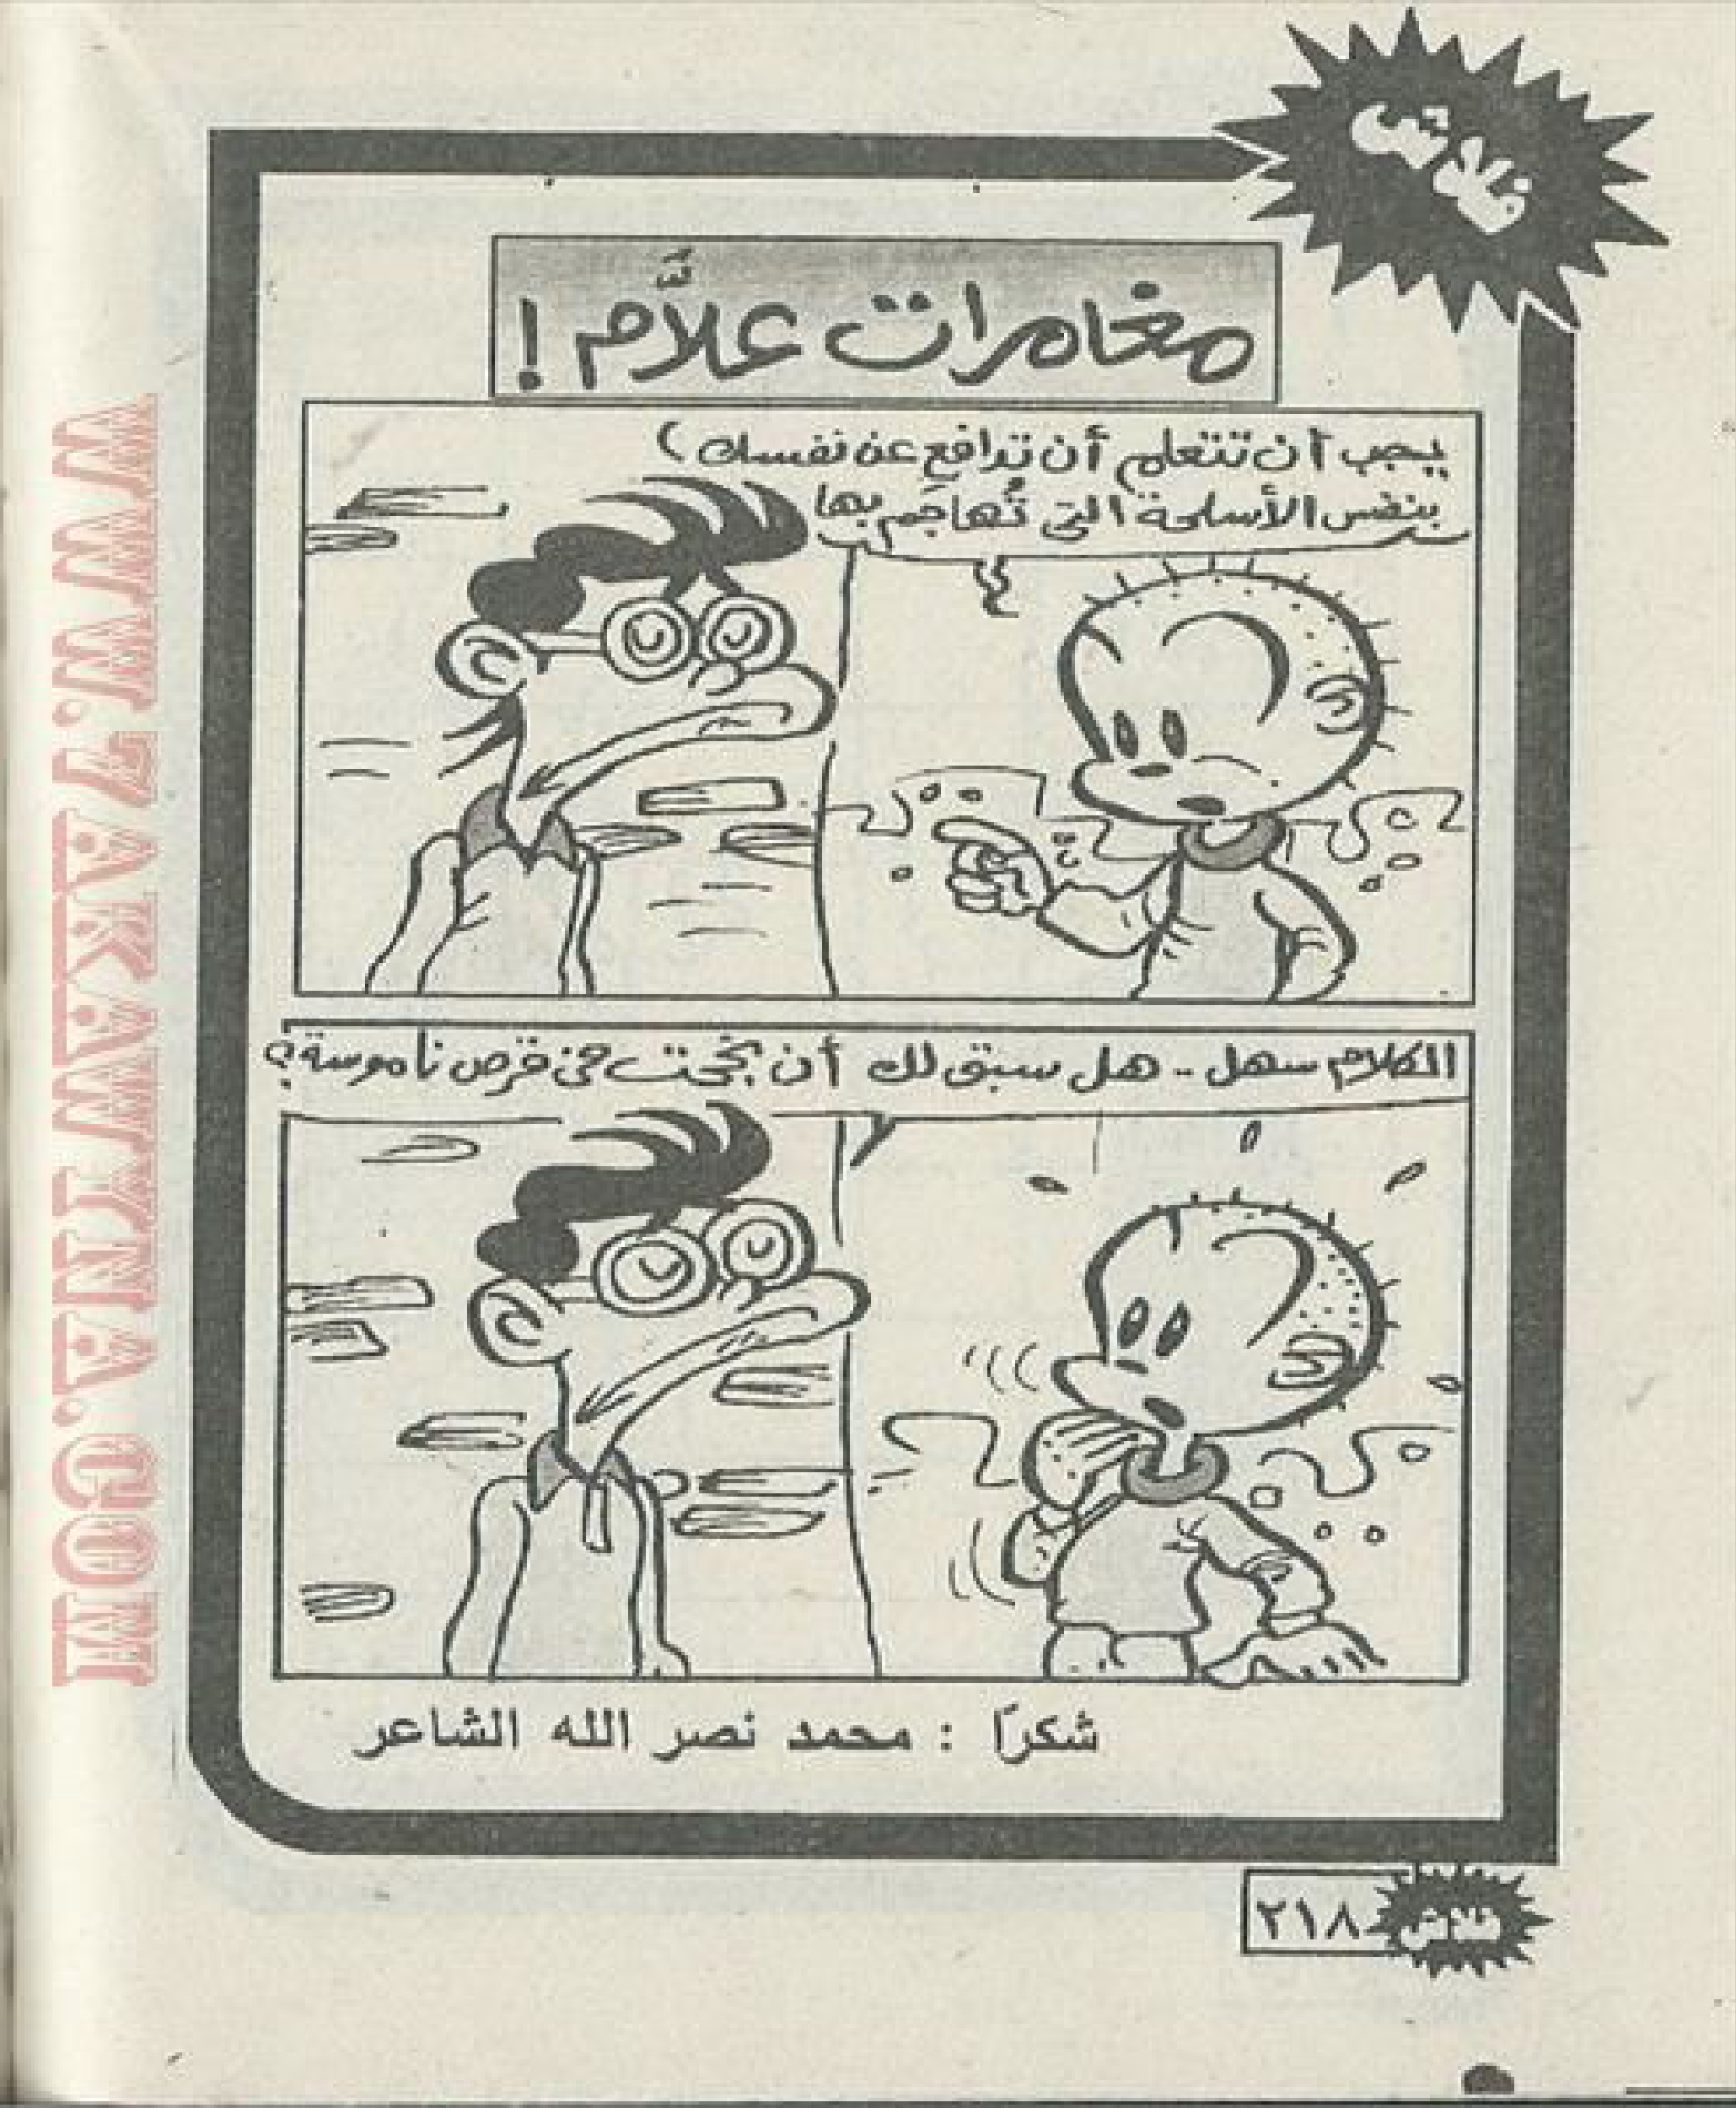 فلاش
مغامرات علاَّم !
يجب أن تتعلم أن تدافع عن نفسك
بنفس الأسلحة التى تُهاجَم بها
الكلام سهل .. هل سبق لك أن نجحت فى قرص ناموسة ؟
شكرًا : محمد نصر الله الشاعر
٢١٨
فلاش
WWW.7AKAWYNA.COM